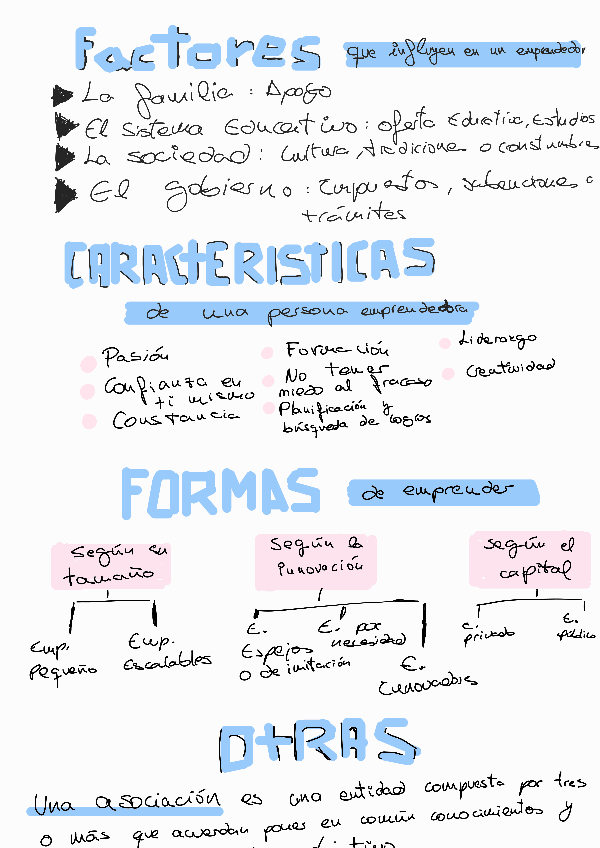 Factores que influyen en un emprendedor
La familia : Apoyo
El sistema Educativo : oferta Educativa, Estudios
La sociedad : Cultura, tradiciones o costumbres
El gobierno : Impuestos, subenciones o
trámites
CARACTERISTICAS
de una persona emprendedora
Pasión
Confianza en
ti mismo
Constancia
Formación
No tener
miedo al fracaso
Planificación y
búsqueda de logros
Liderazgo
Creatividad
FORMAS de emprender
Según su
tamaño
Emp.
Pequeño
Emp.
Escalables
Según la
Innovación
E.
Espejos
o de imitación
E. por
necesidad
E.
Innovadores
según el
capital
E.
privado
E.
público
OtRAS
Una asociación es una entidad compuesta por tres
o más que acuerdan poner en común conocimientos y